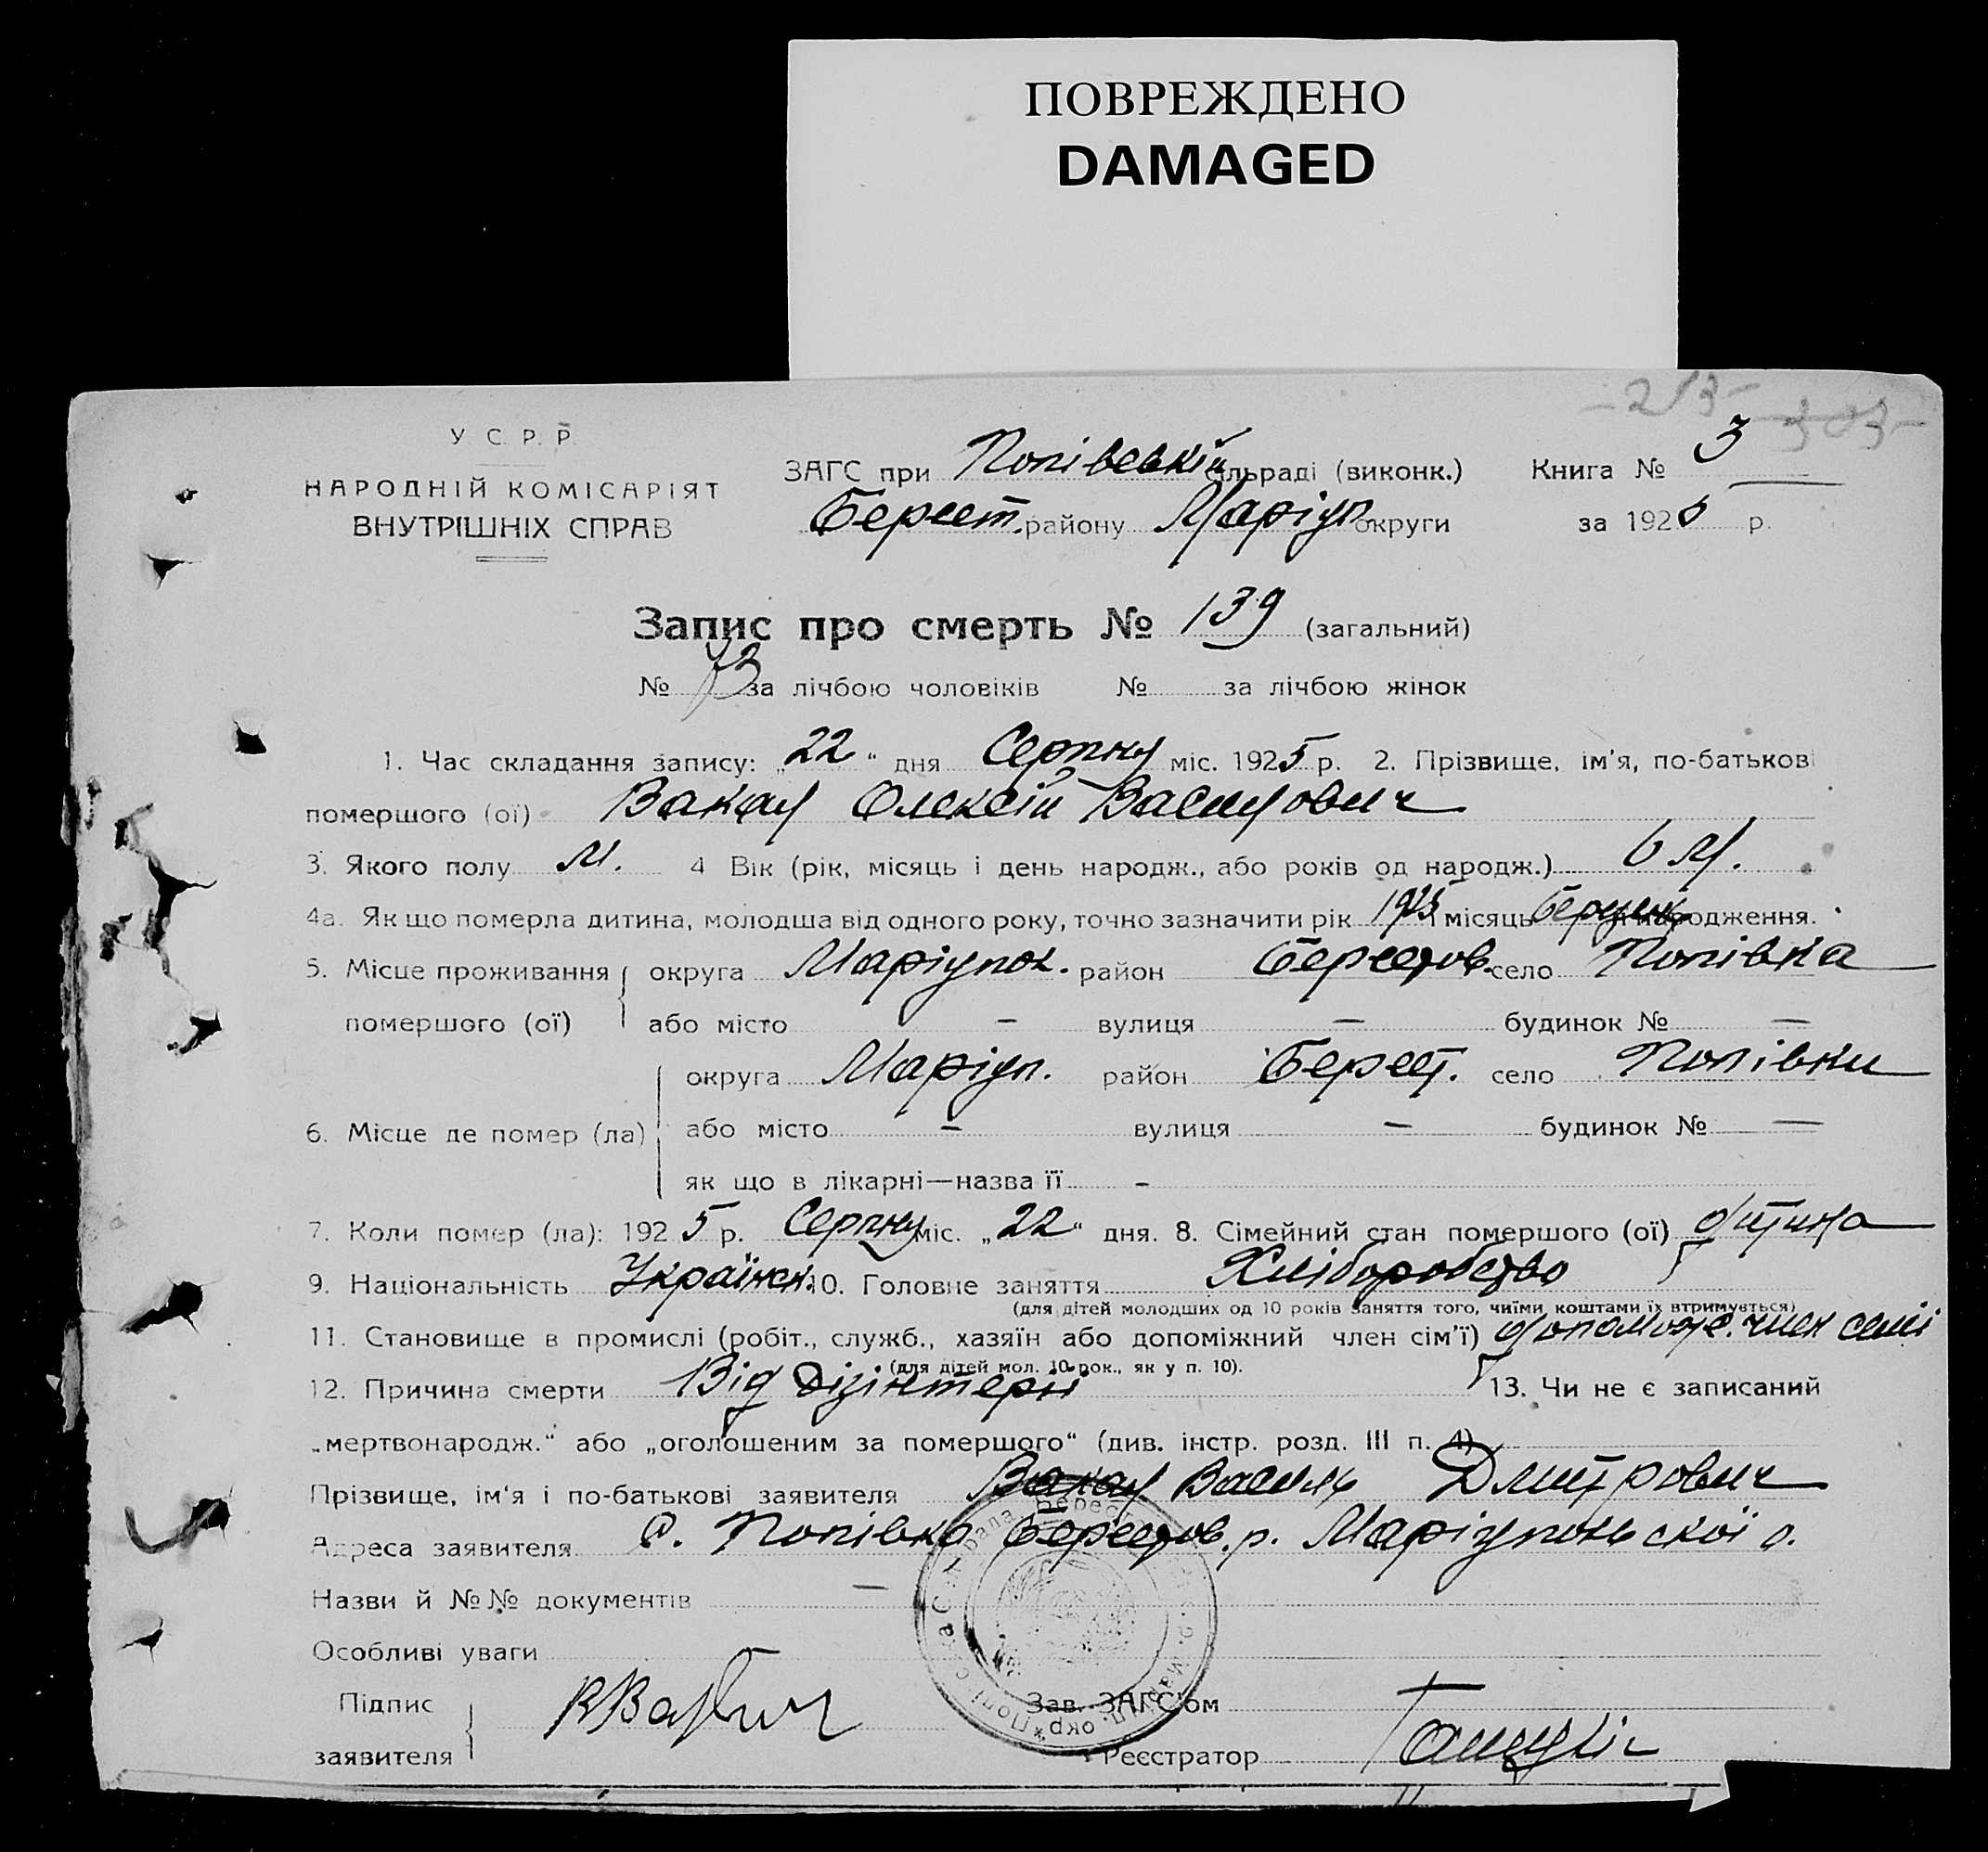 ПОВРЕЖДЕНО
DAMAGED
-213- -303-
У С. Р. Р.
НАРОДНІЙ КОМІСАРІЯТ
ВНУТРІШНІХ СПРАВ
ЗАГС при Попівській сільраді (виконк.) Книга № 3
Берест. району Маріуп. округи за 1925 р.
Запис про смерть № 139 (загальний)
№ 73 за лічбою чоловіків № за лічбою жінок
1. Час складання запису: „22" дня Серпня міс. 1925 р. 2. Прізвище, ім'я, по-батькові
помершого (ої) Вакал Олексій Василович
3. Якого полу М. 4 Вік (рік, місяць і день народж., або років од народж.) 6 м.
4а. Як що померла дитина, молодша від одного року, точно зазначити рік 1925 місяць березень народження.
5. Місце проживання округа Маріупол. район Берестов. село Попівка
помершого (ої) або місто — вулиця — будинок № —
округа Маріуп. район Берест. село Попівки
6. Місце де помер (ла) або місто — вулиця — будинок № —
як що в лікарні—назва її –
7. Коли помер (ла): 1925 р. Серпня міс. „22" дня. 8. Сімейний стан помершого (ої) дитина
9. Національність Українц. 10. Головне заняття Хліборобство
(для дітей молодших од 10 років заняття того, чиїми коштами їх втримується)
11. Становище в промислі (робіт., служб., хазяїн або допоміжний член сім'ї) допомож. член семі
(для дітей мол. 10 рок., як у п. 10).
12. Причина смерти Від дізінтерії 13. Чи не є записаний
„мертвонародж." або „оголошеним за помершого" (див. інстр. розд. III п. 4)
Прізвище, ім'я і по-батькові заявителя Вакал Василь Дмитрович
Адреса заявителя С. Попівка Берестов. р. Маріупольської о.
Назви й №№ документів —
Особливі уваги
Підпис
заявителя
Зав. ЗАГС'ом
Реєстратор